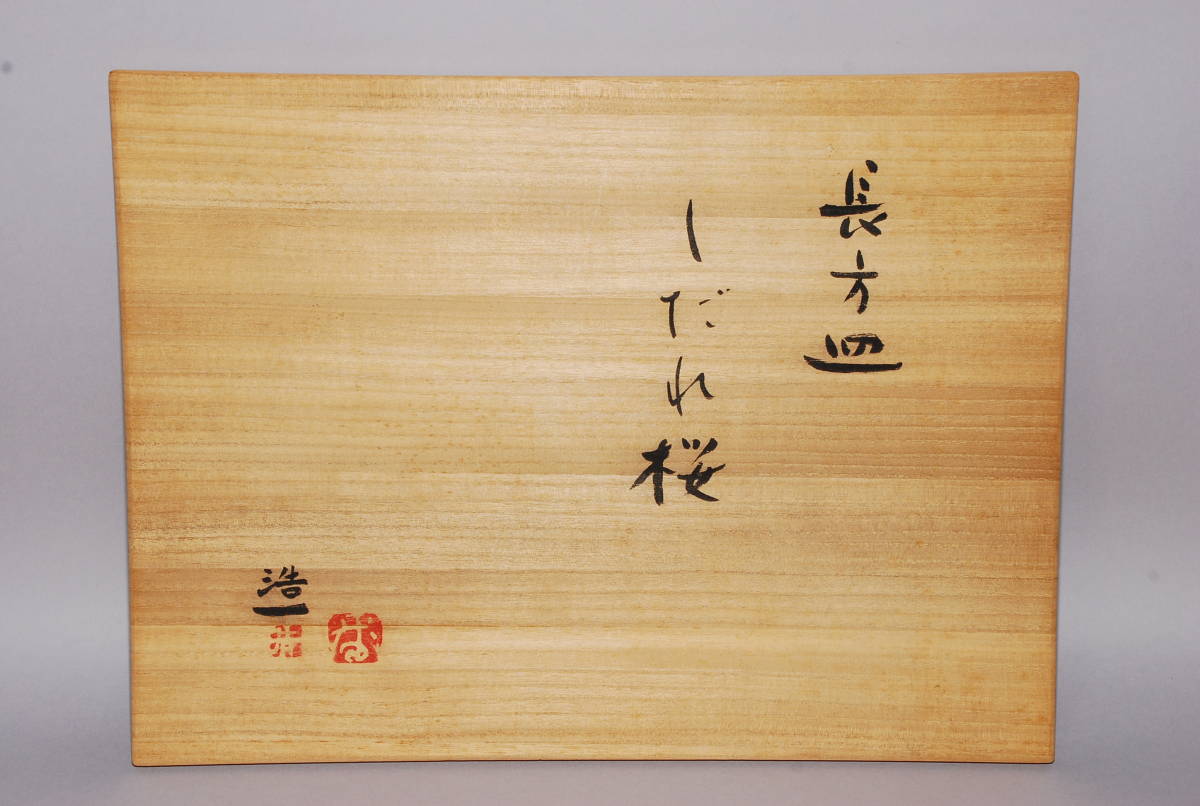 長方皿
しだれ桜
浩一